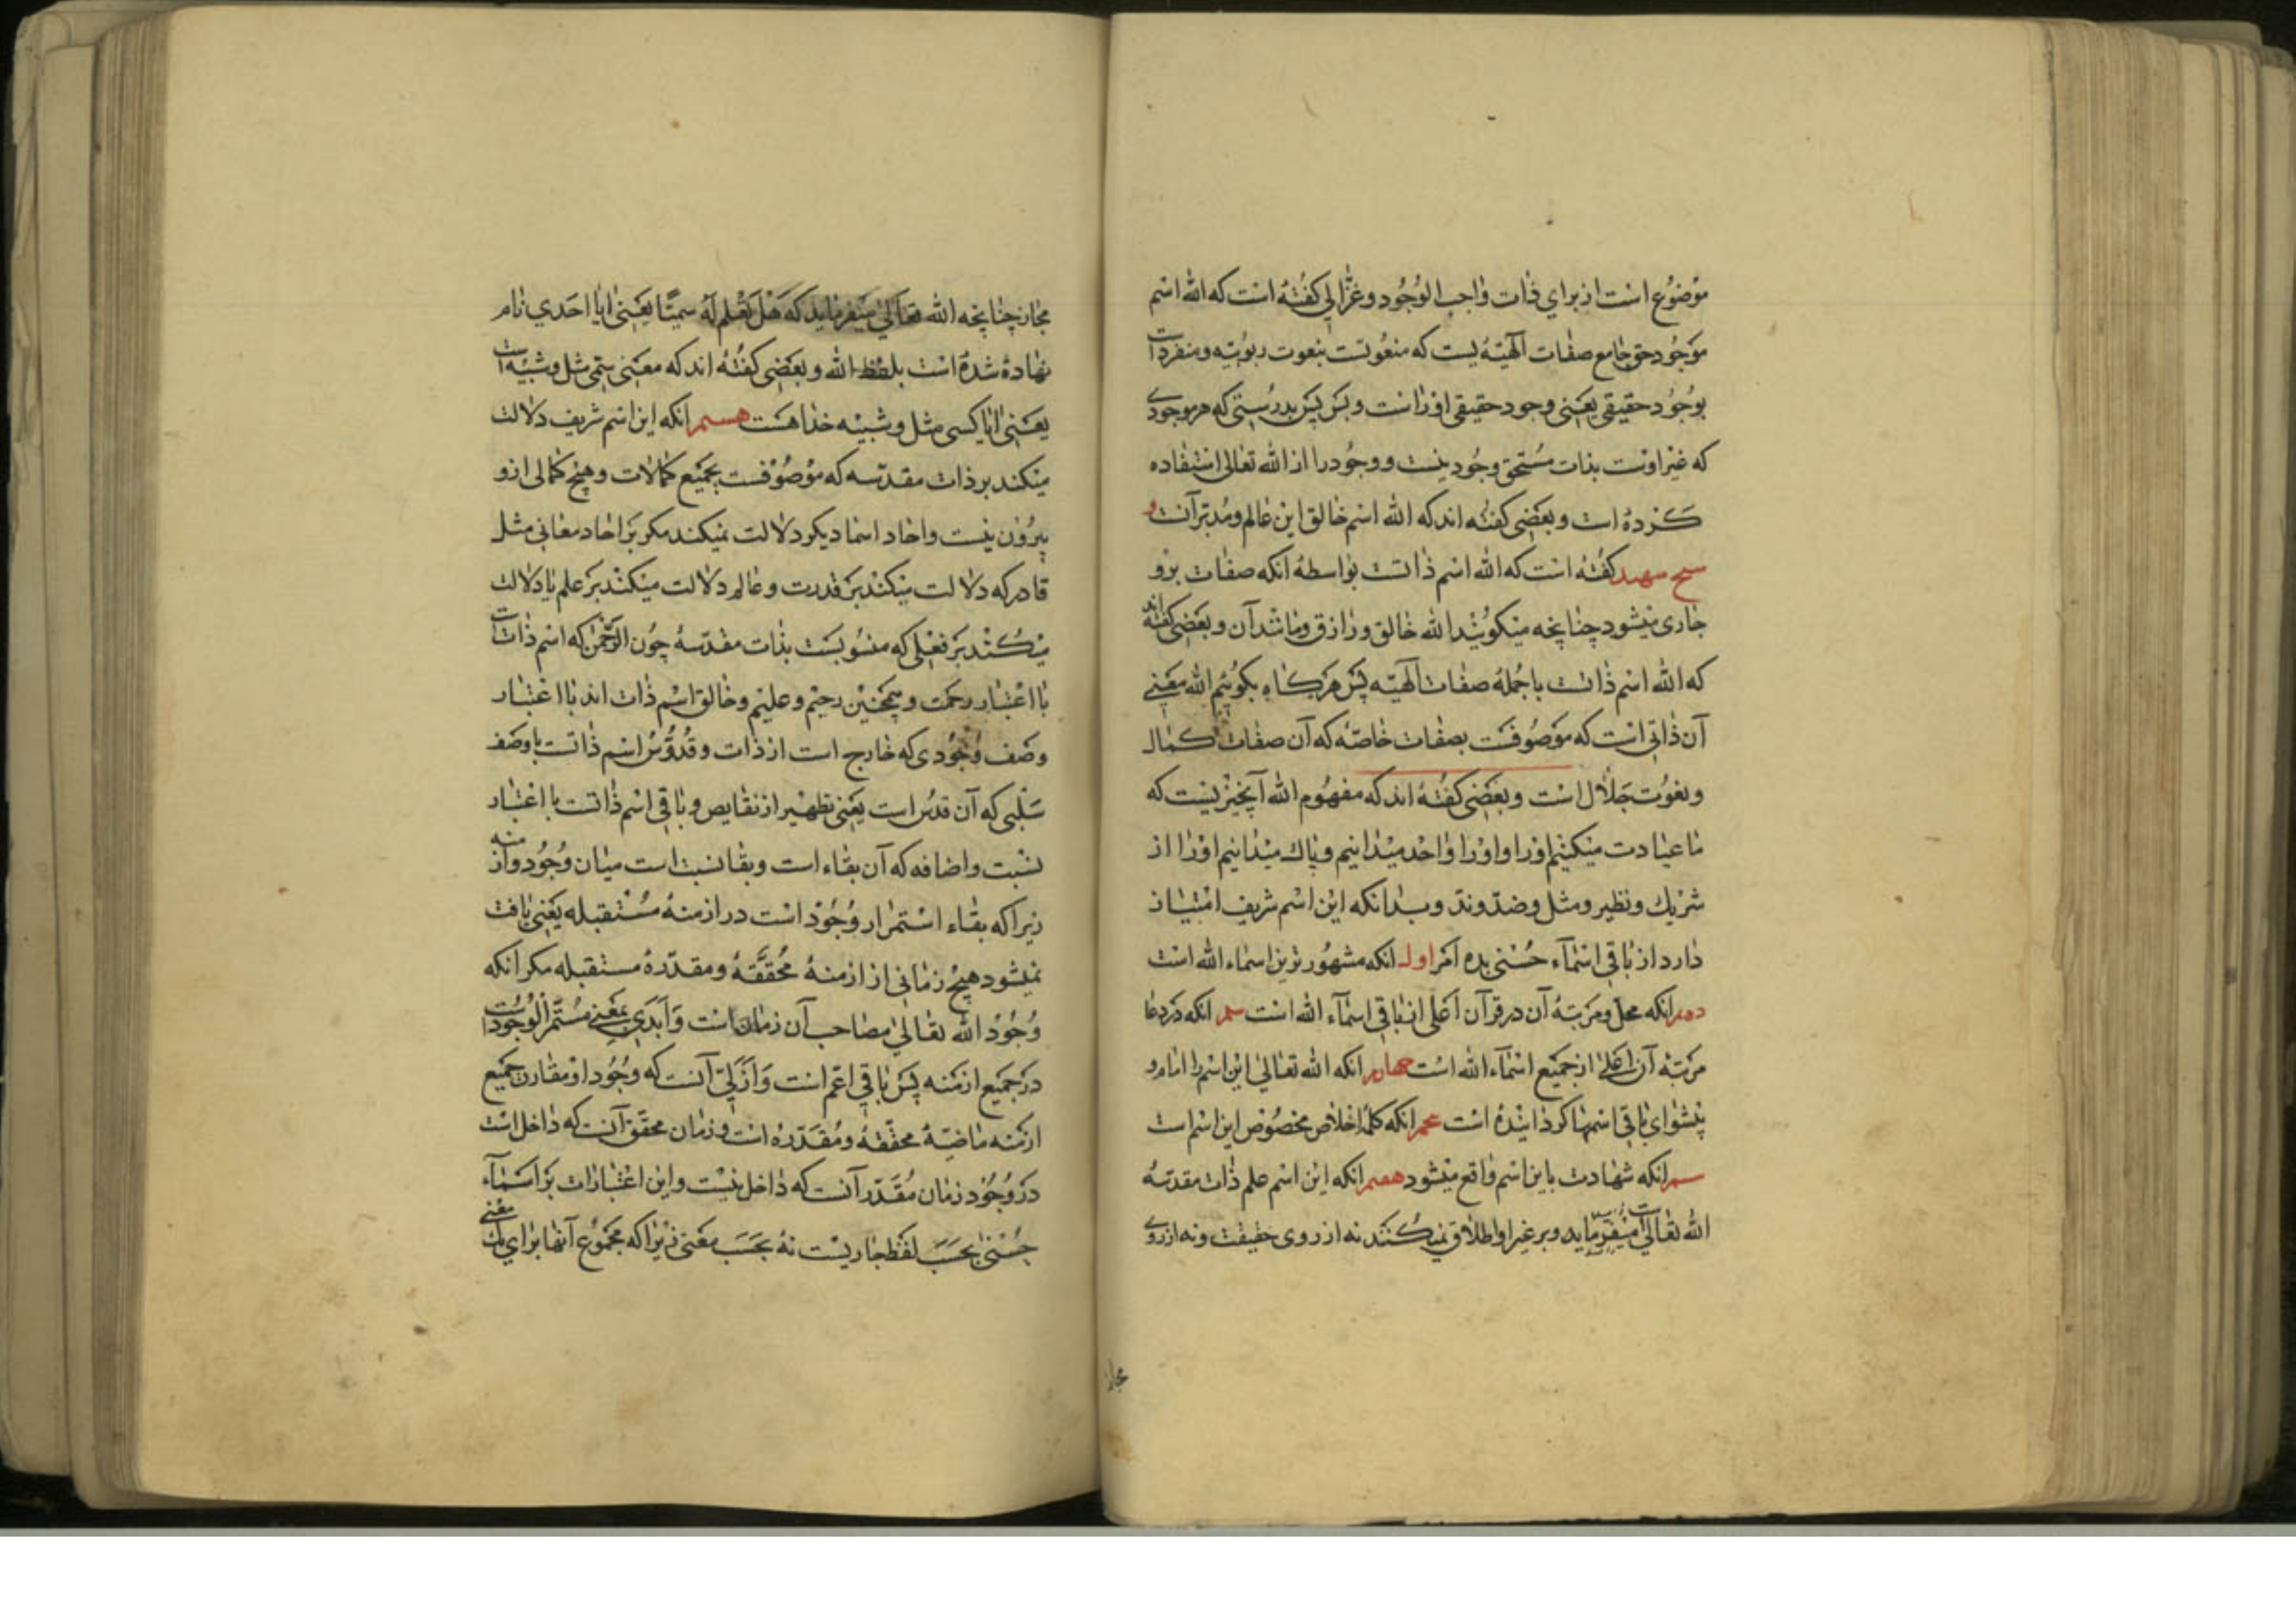 موضوع است از برای ذات واجب الوجود و غزّالی کفته است که الله اسم
موجود حق جامع صفات آلهیّه یست که منعوتست بنعوت ربوبیّه و منفرد است
بوجود حقیقی یعنی وجود حقیقی اوراست و بس پس بدرستی که هر موجودی
که غیر اوست بذات مستحق وجود نیست و وجود را از الله تعالی استفاده
کرده است و بعضی کفته اند که الله اسم خالق این عالم و مدبّر آنست و
شیخ شهید کفته است که الله اسم ذاتست بواسطهٔ انکه صفات برو
جاری میشود چنانچه میکویند الله خالق و رازق و مانند آن و بعضی کفته اند
که الله اسم ذاتست با جملهٔ صفات آلهیّه پس هرکاه بکوییم الله معنی
آن ذاتی است که موصوفست بصفات خاصّه که آن صفات کمال
و نعوت جلال است و بعضی کفته اند که مفهوم الله آنچیزیست که
ما عبادت میکنیم اورا و اورا واحد میدانیم و پاک میدانیم اورا از
شریک و نظیر و مثل و ضدّ و ندّ و بدانکه این اسم شریف امتیاز
دارد از باقی اسمآء حسنی بده امر اول انکه مشهورترین اسماء الله است
دوم انکه محل و مرتبهٔ آن در قرآن اعلی از باقی اسمآء الله است سیم انکه در دعا
مرتبهٔ آن اعلی از جمیع اسمآء الله است چهارم انکه الله تعالی این اسم را امام و
پیشوای باقی اسمها کردانیده است پنجم انکه کلمهٔ اخلاص مخصوص این اسم است
ششم انکه شهادت باین اسم واقع میشود هفتم انکه این اسم علم ذات مقدسهٔ
الله تعالی میفرماید و بر غیر او اطلاق نمیکنند نه از روی حقیقت و نه از روی
مجاز
مجاز چنانچه الله تعالی میفرماید که هل تعلم له سمیّا یعنی ایا احدی نام
نهاده شده است بلفظ الله و بعضی کفته اند که معنی سمی مثل و شبیه است
یعنی ایا کسی مثل و شبیه خدا هست هشتم انکه این اسم شریف دلالت
میکند بر ذات مقدسه که موصوفست بجمیع کمالات و هیچ کمالی ازو
بیرون نیست و احاد اسما دیکر دلالت نمیکند مکر بر احاد معانی مثل
قادر که دلالت میکند بر قدرت و عالم دلالت میکند بر علم یا دلالت
میکند بر فعلی که منسوبست بذات مقدسه چون الرّحمن که اسم ذاتست
با اعتبار رحمت و همچنین رحیم و علیم و خالق اسم ذات اند با اعتبار
وصف وجودی که خارج است از ذات و قدّوس اسم ذاتست با وصف
سلبی که آن قدس است یعنی تطهیر از نقایص و باقی اسم ذاتست با اعتبار
نسبت و اضافه که آن بقاء است و بقا نسبت است میان وجود و ازمنه
زیرا که بقاء استمرار وجود است در ازمنهٔ مستقبله یعنی یافت
نمیشود هیچ زمانی از ازمنهٔ محققه و مقدّرهٔ مستقبله مکر انکه
وجود الله تعالی مصاحب آن زمان است و ابدی بمعنی مستمر الوجود است
در جمیع ازمنه پس باقی اعم است و ازلی آنست که وجود او مقارن جمیع
ازمنه ماضیهٔ محققه و مقدّره است و زمان محقق آنست که داخل است
در وجود و زمان مقدّر آنست که داخل نیست و این اعتبارات بر اسمآء
حسنی بحسب لفظ جاریست نه بحسب معنی زیرا که مجموع آنها برای یک معنی